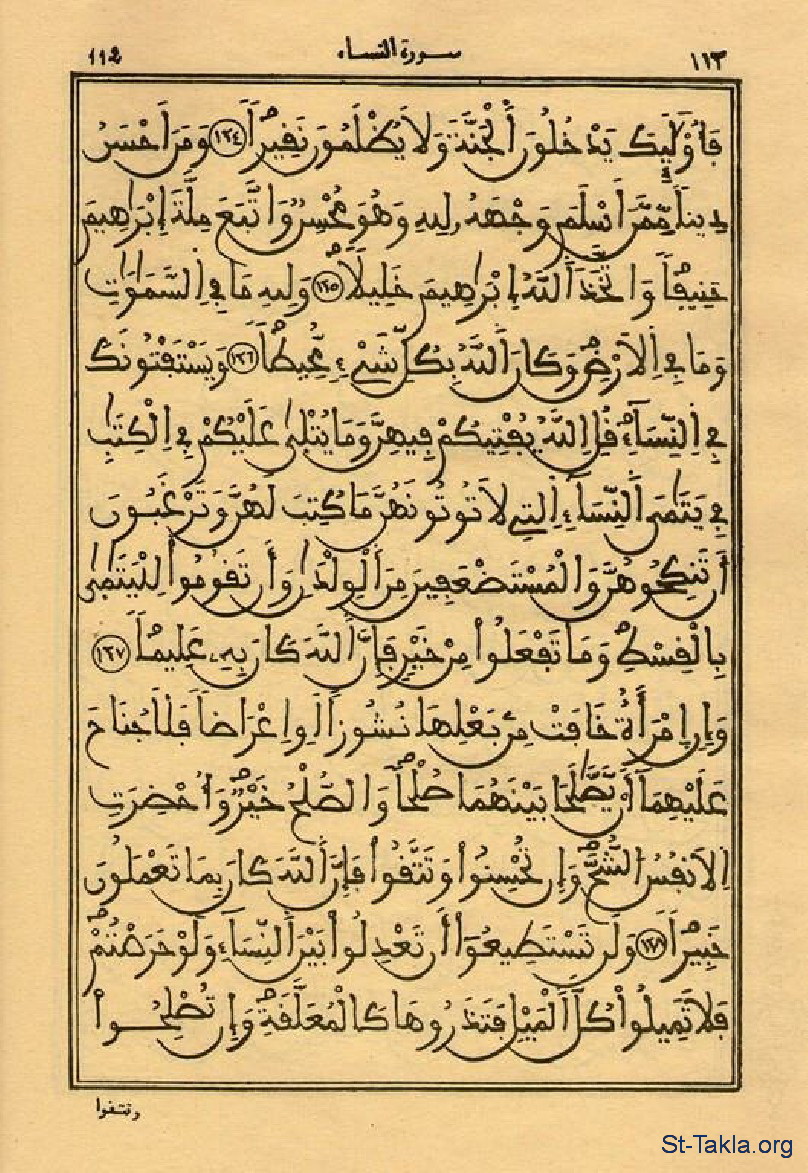 ١١٣ سورة النساء 112
فَأُوْلَٰٓئِكَ يَدْخُلُونَ اَ۬لْجَنَّةَ وَلَا يُظْلَمُونَ نَقِيراً ١٢٤ وَمَنَ اَحْسَنُ
دِيناً مِّمَّنَ اَسْلَمَ وَجْهَهُۥ لِلهِ وَهُوَ مُحْسِنٌ وَاتَّبَعَ مِلَّةَ إِبْرَٰهِيمَ
حَنِيفاً وَاتَّخَذَ اَ۬للَّهُ إِبْرَٰهِيمَ خَلِيلاً ١٢٥ وَلِلهِ مَا فِے اِ۬لسَّمَٰوَٰتِ
وَمَا فِے اِ۬لَارْضِ وَكَانَ اَ۬للَّهُ بِكُلِّ شَےْءٍ مُّحِيطاً ١٢٦ وَيَسْتَفْتُونَكَ
فِے اِ۬لنِّسَآءِ قُلِ اِ۬للَّهُ يُفْتِيكُمْ فِيهِنَّ وَمَا يُتْلَىٰ عَلَيْكُمْ فِے اِ۬لْكِتَٰبِ
فِے يَتَٰمَى اَ۬لنِّسَآءِ اِ۬لتِے لَا تُوتُونَهُنَّ مَا كُتِبَ لَهُنَّ وَتَرْغَبُونَ
أَن تَنكِحُوهُنَّ وَالْمُسْتَضْعَفِينَ مِنَ اَ۬لْوِلْدَٰنِ وَأَن تَقُومُواْ لِلْيَتَٰمَىٰ
بِالْقِسْطِ وَمَا تَفْعَلُواْ مِنْ خَيْرٍ فَإِنَّ اَ۬للَّهَ كَانَ بِهِۦ عَلِيماً ١٢٧
وَإِنِ اِ۪مْرَأَةٌ خَافَتْ مِنۢ بَعْلِهَا نُشُوزاً اَوِ اِعْرَاضاً فَلَا جُنَاحَ
عَلَيْهِمَآ أَنْ يَّصَّٰلَحَا بَيْنَهُمَا صُلْحاً وَالصُّلْحُ خَيْرٌ وَأُحْضِرَتِ
اِ۬لَانفُسُ اُ۬لشُّحَّ وَإِن تُحْسِنُواْ وَتَتَّقُواْ فَإِنَّ اَ۬للَّهَ كَانَ بِمَا تَعْمَلُونَ
خَبِيراً ١٢٨ وَلَن تَسْتَطِيعُوٓاْ أَن تَعْدِلُواْ بَيْنَ اَ۬لنِّسَآءِ وَلَوْ حَرَصْتُمْ
فَلَا تَمِيلُواْ كُلَّ اَ۬لْمَيْلِ فَتَذَرُوهَا كَالْمُعَلَّقَةِ وَإِن تُصْلِحُواْ
وتتقوا
St-Takla.org